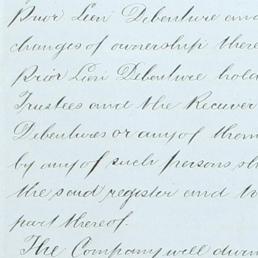 Prior Lien Debenture and
changes of ownership there
Prior Lien Debenture hold
Trustees and the Receiver
Debentures or any of them
by any of such persons sh
the said register and to
part thereof.
The Company will durin